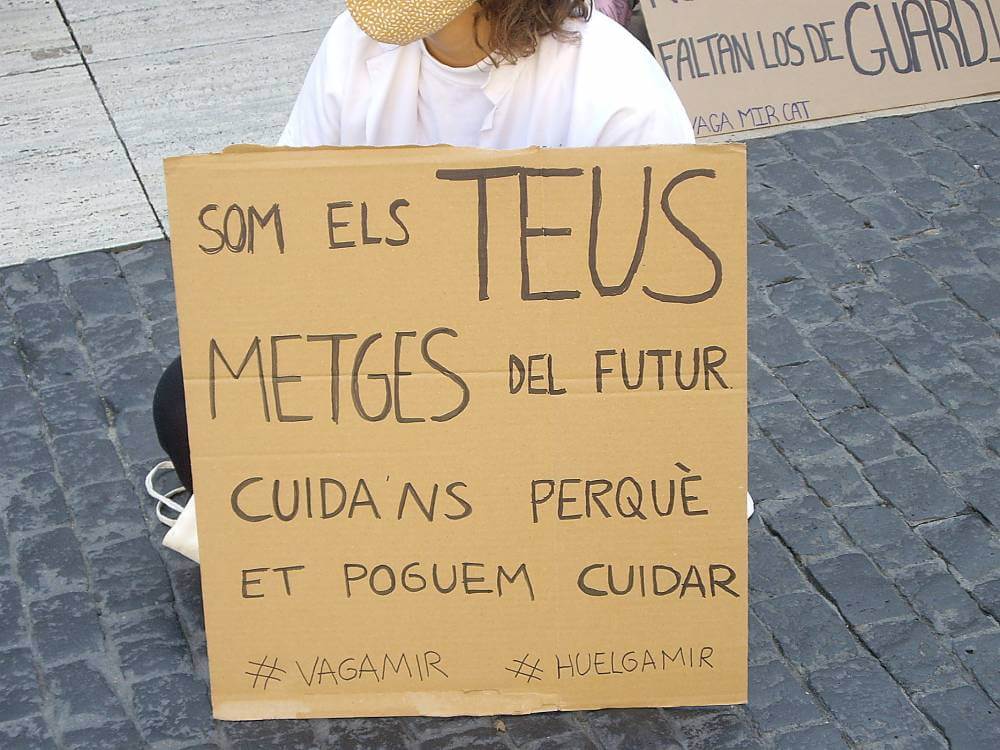 FALTAN LOS DE
VAGA MIR CAT
SOM ELS TEUS
METGES DEL FUTUR.
CUIDA'NS PERQUÈ
ET POGUEM CUIDAR
# VAGAMIR # HUELGAMIR